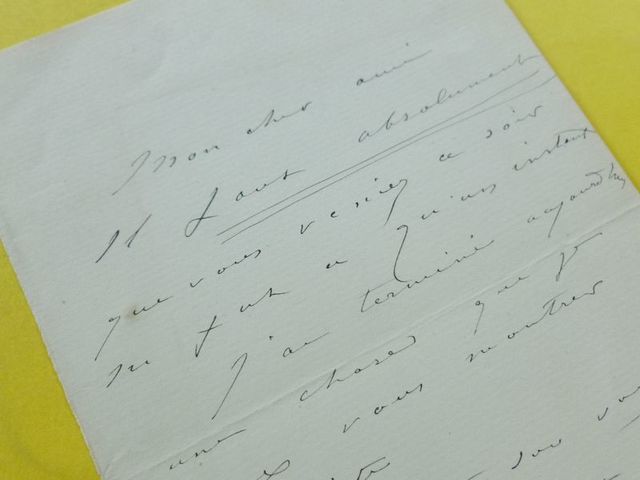 Mon cher ami
Il faut absolument
que vous veniez ce soir
ne fut ce qu'un instant
J'ai terminé aujourd'hui
une chose que je
vous montrer